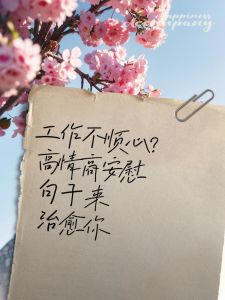 happiness
company
工作不顺心?
高情商安慰
句子来
治愈你